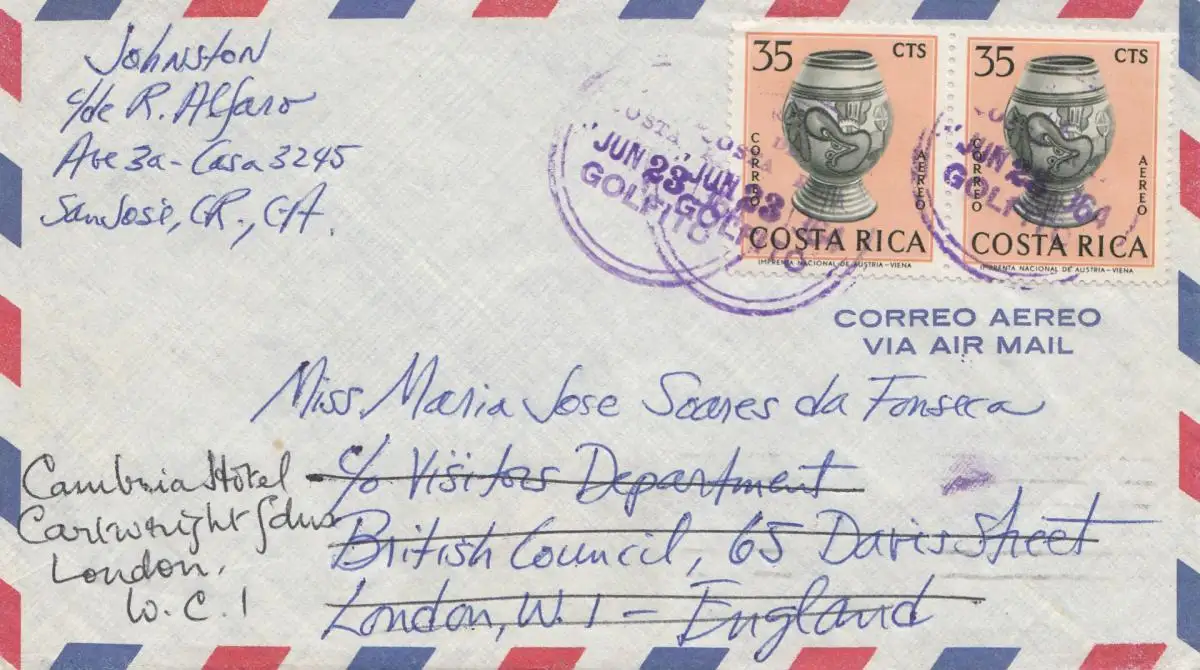 Johnston
c/de R. Alfaro
Ave 3a - Casa 3245
San José, CR., CA.
35 CTS
CORREO
AEREO
COSTA RICA
IMPRENTA NACIONAL DE AUSTRIA - VIENA
35 CTS
CORREO
AEREO
COSTA RICA
IMPRENTA NACIONAL DE AUSTRIA - VIENA
COSTA
JUN 23
GOLFITO
COSTA
JUN 23
GOLFITO
JUN 23 1964
GOLFITO
CORREO AEREO
VIA AIR MAIL
Miss Maria Jose Soares da Fonseca
c/o Visitors Department
British Council, 65 Davis Street
London, W.1 - England
Cambria Hotel
Cartwright Gdns
London,
W.C.1